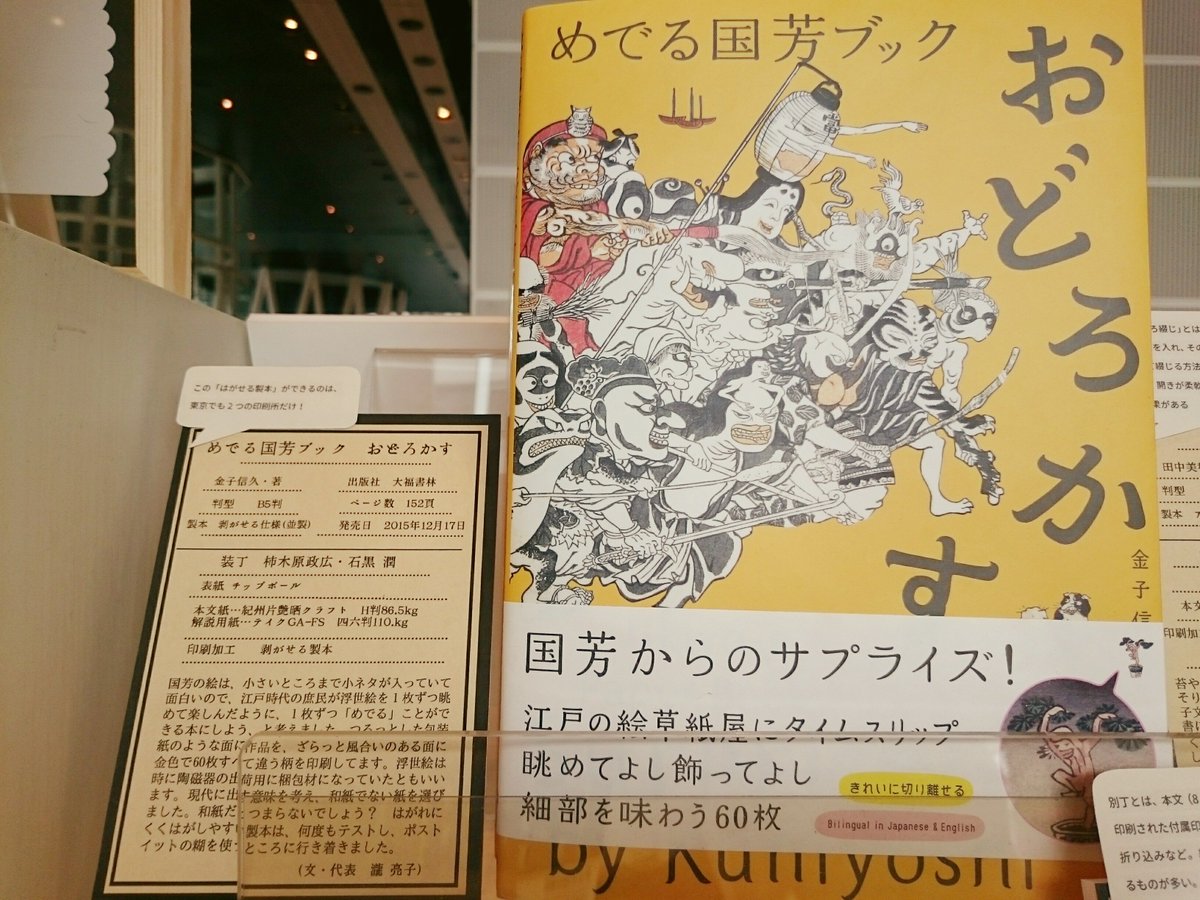 この「はがせる製本」ができるのは、
東京でも2つの印刷所だけ！
めでる国芳ブック　おどろかす
金子信久・著　出版社　大福書林
判型　B5判　ページ数　152頁
製本　剥がせる仕様(並製)　発売日　2015年12月17日
装丁　柿木原政広・石黒 潤
表紙 チップボール
本文紙…紀州片艶晒クラフト　H判86.5kg
解説用紙…テイクGA-FS　四六判110.kg
印刷加工　剥がせる製本
国芳の絵は、小さいところまで小ネタが入っていて
面白いので、江戸時代の庶民が浮世絵を1枚ずつ眺
めて楽しんだように、1枚ずつ「めでる」ことがで
きる本にしよう、と考えました。つるっとした包装
紙のような面に作品を、ざらっと風合いのある面に
金色で60枚すべて違う柄を印刷してます。浮世絵は
時に陶磁器の出荷用に梱包材になっていたともいい
ます。現代に出す意味を考え、和紙でない紙を選び
ました。和紙だとつまらないでしょう？　はがれに
くくはがしやすい製本は、何度もテストし、ポスト
イットの糊を使うところに行き着きました。
(文・代表　瀧 亮子)
めでる国芳ブック
おどろかす
金子信
国芳からのサプライズ！
江戸の絵草紙屋にタイムスリップ
眺めてよし飾ってよし
細部を味わう60枚
きれいに切り離せる
Bilingual in Japanese & English
by Kuniyoshi
ろ綴じ」とは
を入れ、その
綴じる方法
開きが柔軟
田中美
判型
製本
本文
印刷加工
別丁とは、本文（8
印刷された付属印
折り込みなど。
るものが多い。